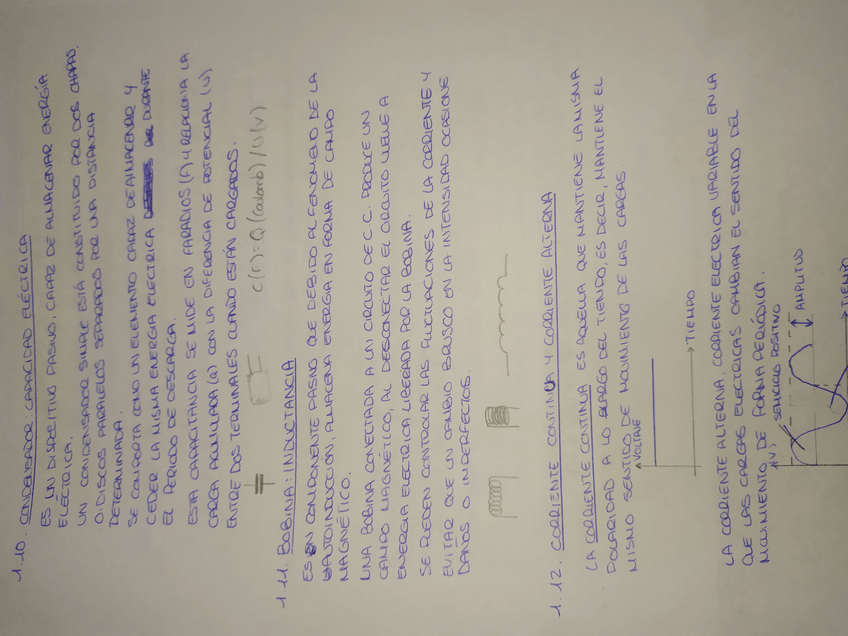 1.10. CONDENSADOR: CAPACIDAD ELÉCTRICA
ES UN DISPOSITIVO PASIVO, CAPAZ DE ALMACENAR ENERGÍA
ELÉCTRICA.
UN CONDENSADOR SIMPLE ESTÁ CONSTITUIDO POR DOS CHAPAS
O DISCOS PARALELOS SEPARADOS POR UNA DISTANCIA
DETERMINADA.
SE COMPORTA COMO UN ELEMENTO CAPAZ DE ALMACENAR Y
CEDER LA MISMA ENERGÍA ELECTRICA DURANTE
EL PERIODO DE DESCARGA.
ESTA CAPACITANCIA SE MIDE EN FARADIOS (F) Y RELACIONA LA
CARGA ACUMULADA (Q) CON LA DIFERENCIA DE POTENCIAL (U)
ENTRE DOS TERMINALES CUANDO ESTÁN CARGADOS.
C(F)=Q(coulomb)/U(V)
1.11. BOBINA: INDUCTANCIA
ES UN COMPONENTE PASIVO QUE DEBIDO AL FENOMENO DE LA
AUTOINDUCCIÓN, ALMACENA ENERGIA EN FORMA DE CAMPO
MAGNÉTICO.
UNA BOBINA CONECTADA A UN CIRCUITO DE C.C. PRODUCE UN
CAMPO MAGNÉTICO, AL DESCONECTAR EL CIRCUITO LLEVE A
ENERGIA ELECTRICA LIBEGADA POR LA BOBINA.
SE PUEDEN CONTROLAR LAS FLUCTUACIONES DE LA CORRIENTE Y
EVITAR QUE UN CAMBIO BRUSCO EN LA INTENSIDAD OCASIONE
DAÑOS O IMPERFECTOS.
1.12. CORRIENTE CONTINUA Y CORRIENTE ALTERNA
LA CORRIENTE CONTINUA ES AQUELLA QUE MANTIENE LA MISMA
POLARIDAD A LO LARGO DEL TIEMPO, ES DECIR, MANTIENE EL
MISMO SENTIDO DE MOVIMIENTO DE LAS CARGAS.
VOLTAJE
TIEMPO
LA CORRIENTE ALTERNA, CORRIENTE ELECTRICA VARIABLE EN LA
QUE LAS CARGAS ELECTRICAS CAMBIAN EL SENTIDO DEL
MOVIMIENTO DE FORMA PERIÓDICA.
(V) SEMICICLO POSITIVO
AMPLITUD
TIEMPO